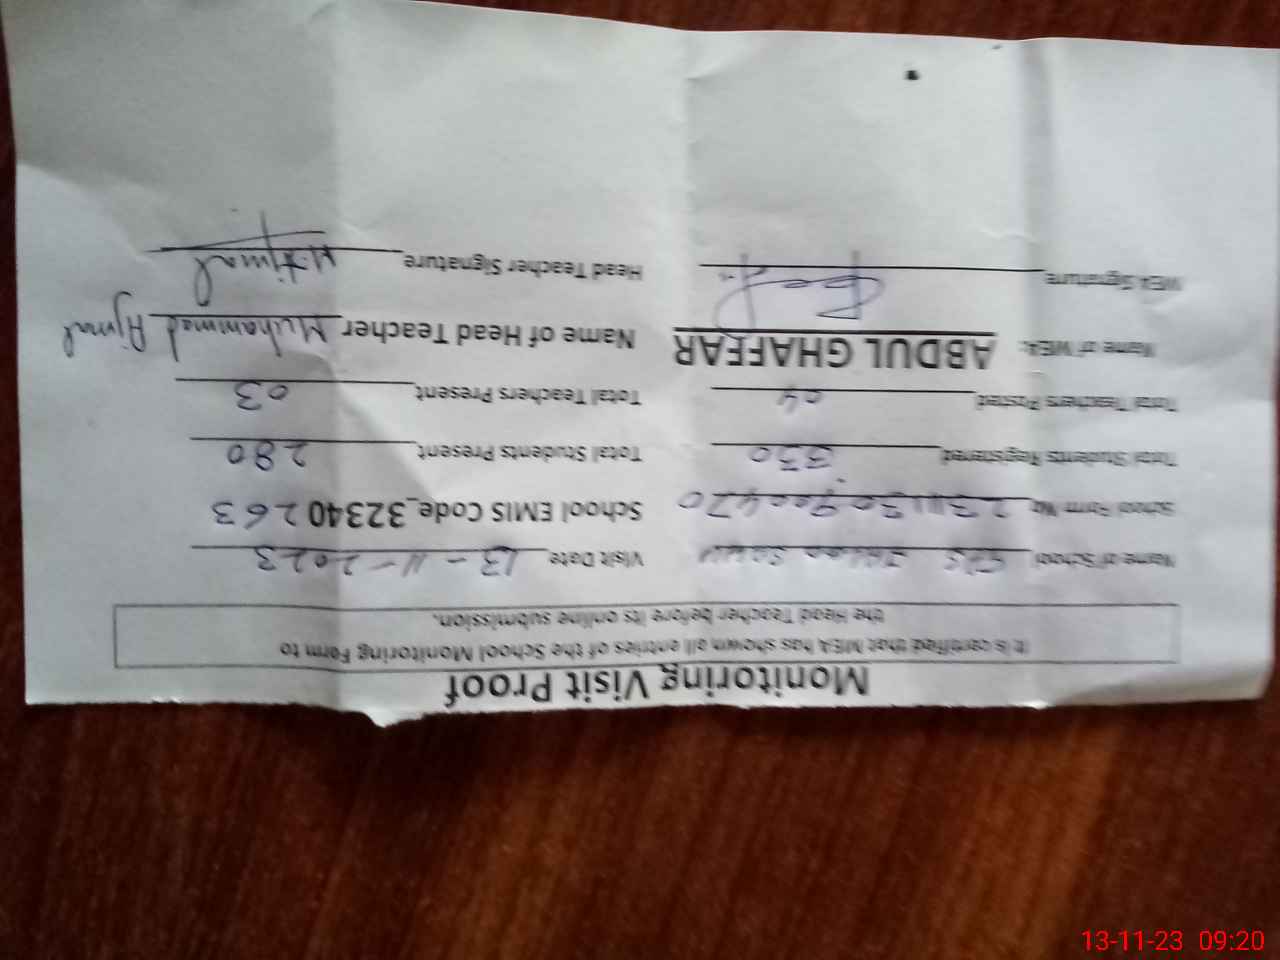 Monitoring Visit Proof
It is certified that MEA has shown all entries of the School Monitoring Form to
the Head Teacher before its online submission.
Name of School Visit Date 13-11-2023
School Form No School EMIS Code_32340263
Total Students Registered 330 Total Students Present 280
Total Teachers Posted 04 Total Teachers Present 03
Name of MEA: ABDUL GHAFFAR Name of Head Teacher Muhammad Ajmal
MEA Signature Head Teacher Signature M.Ajmal
13-11-23 09:20